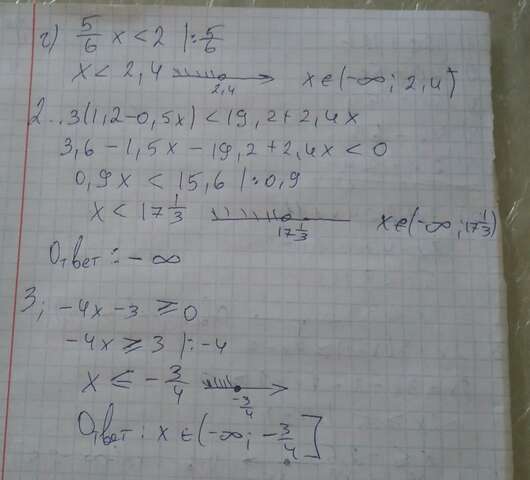 г) 5/6 x < 2 |: 5/6
x < 2,4 2,4 x∈(-∞; 2,4)
2.. 3(1,2-0,5x) < 19,2+2,4x
3,6 - 1,5x - 19,2 + 2,4x < 0
0,9x < 15,6 |: 0,9
x < 17 1/3 17 1/3 x∈(-∞; 17 1/3)
Ответ: - ∞
3; -4x - 3 ⩾ 0
-4x ⩾ 3 |: -4
x ≤ - 3/4 -3/4
Ответ: x ∈ (-∞; -3/4]